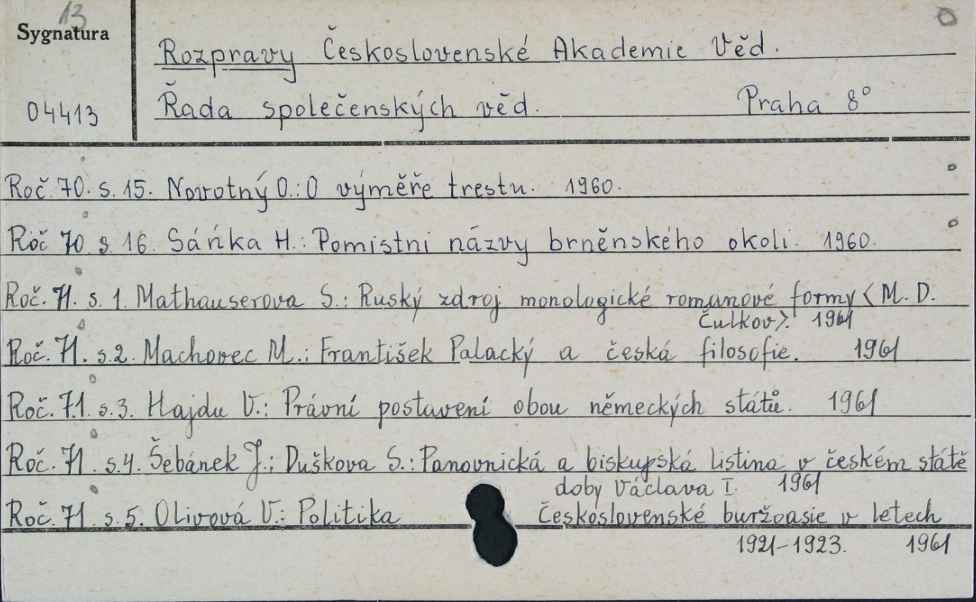 13
Sygnatura
Rozpravy Československé Akademie Věd.
04413
Řada společenských věd. Praha 8°
Roč. 70. s. 15. Novotný O.: O výměře trestu. 1960.
Roč 70 s 16. Sáňka H.: Pomistni názvy brněnského okoli. 1960.
Roč. 71. s. 1. Mathauserova S.: Ruský zdroj monologické romanové formy <M. D.
Čulkov>. 1961
Roč. 71. s.2. Machovec M.: František Palacký a česká filosofie. 1961
Roč. 71. s.3. Hajdu V.: Právní postavení obou německých států. 1961
Roč. 71. s.4. Šebánek J.; Duškova S.: Panovnická a biskupská listina v českém státě
doby Václava I. 1961
Roč. 71 s.5. Olivová V.: Politika Československé buržoasie v letech
1921-1923. 1961